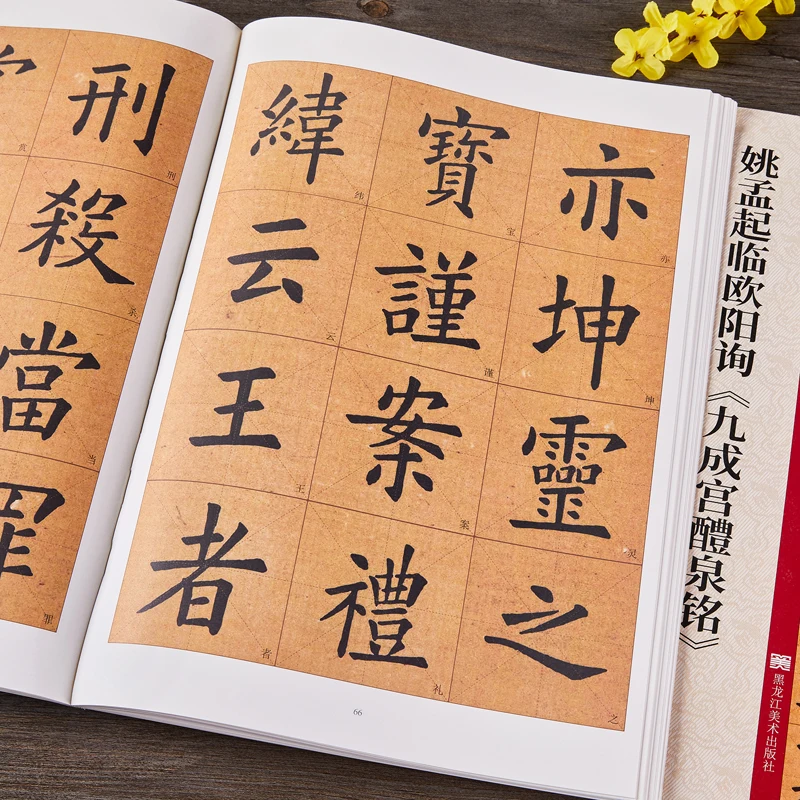 亦坤靈之
亦坤灵之
寶謹案禮
宝谨案礼
緯云王者
纬云王者
66
刑殺當罪
刑杀当罪
赏
姚孟起临欧阳询《九成宫醴泉铭》
黑龙江美术出版社